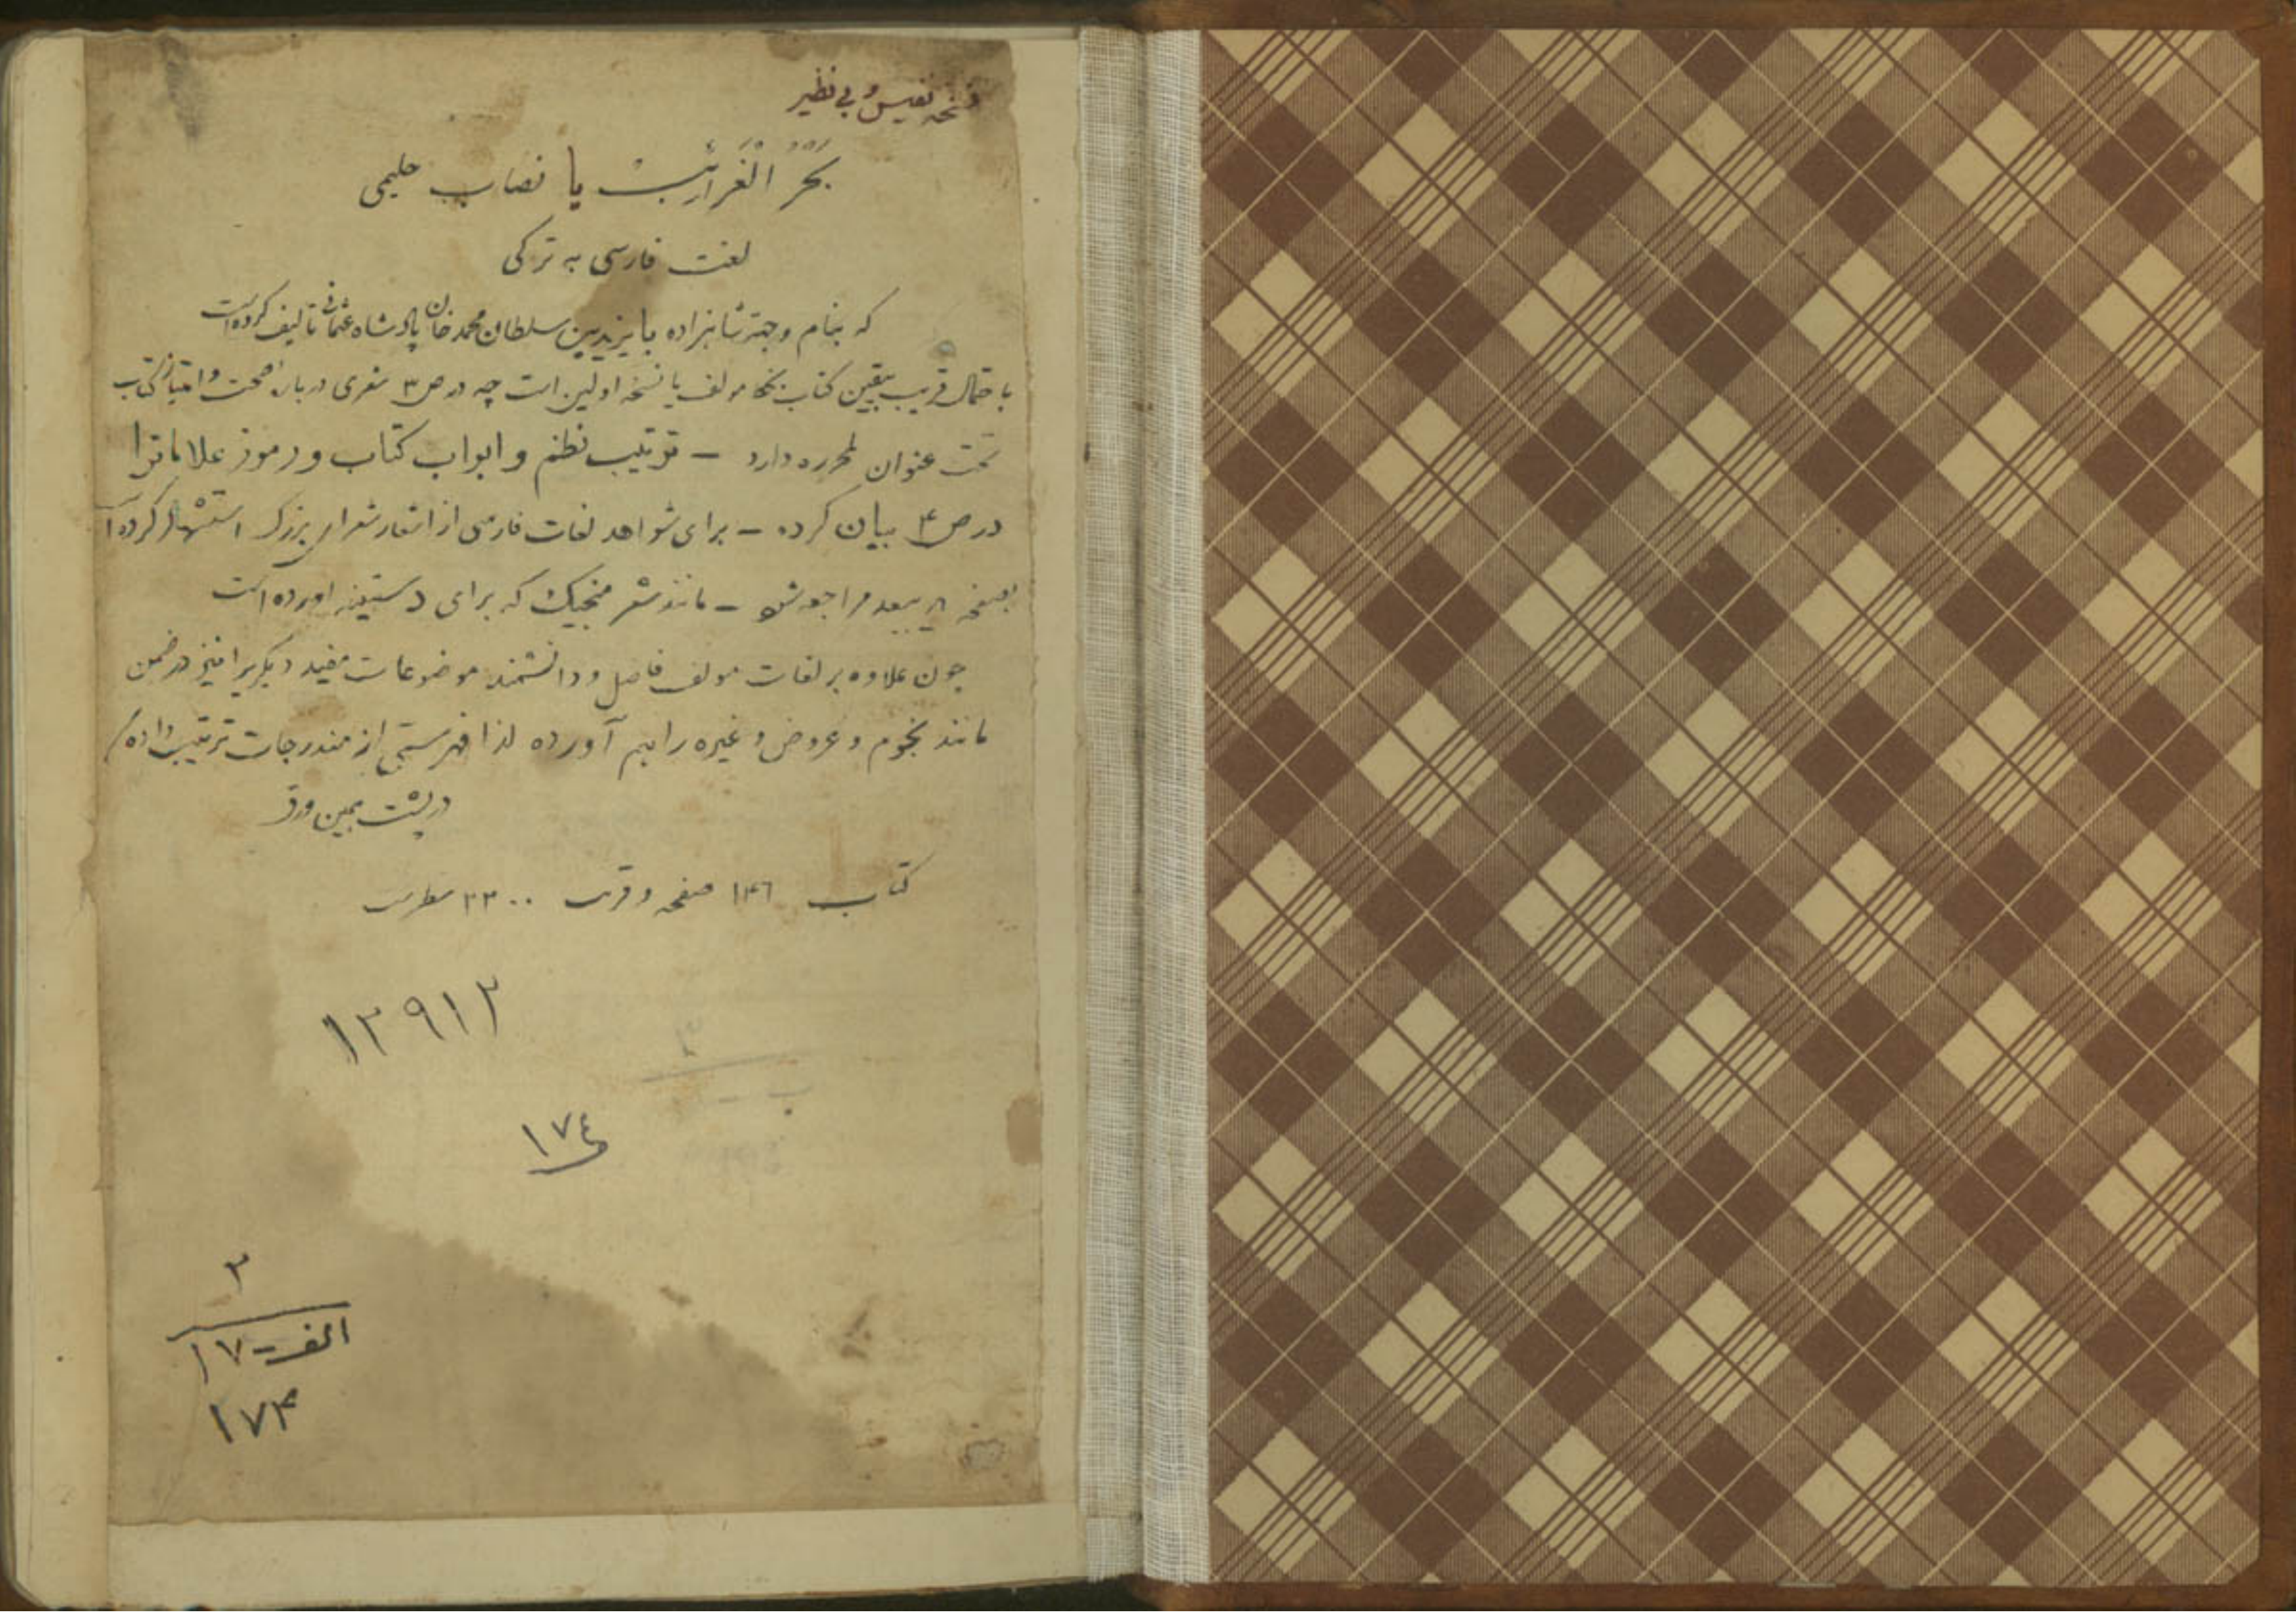 نسخه نفیس و بی نظیر
بَحْرُ الْغَرائِبْ یا نصاب حلیمی
لغت فارسی به ترکی
که بنام وجهة شاهزاده بایزید بن سلطان محمد خان پادشاه عثمانی تالیف کرده است
باحتمال قریب بیقین کتاب بخط مولف یا نسخه اولین است چه در ص ۳ شعری درباره صحت و امتیاز کتاب
تحت عنوان لمحرره دارد – ترتیب نظم و ابواب کتاب و رموز علاماترا
در ص ۴ بیان کرده – برای شواهد لغات فارسی از اشعار شعرای بزرگ استشهاد کرده
بصفحه ببعد مراجعه شود – مانند شعر منجیک که برای آورده است
چون علاوه بر لغات مولف فاضل و دانشمند موضوعات مفید دیگریرا نیز در ضمن
مانند نجوم و عروض و غیره را بهم آورده لذا فهرستی از مندرجات ترتیب داده
در پشت همین ورق
کتاب ۱۴۶ صفحه و قرب ۲۲۰۰ سطر است
۱۲۹۱۲
۱۷٤
۳
الف - ۱۷
۱۷۴